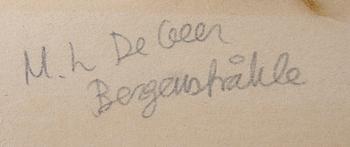 M. L De Geer
Bergenstråhle